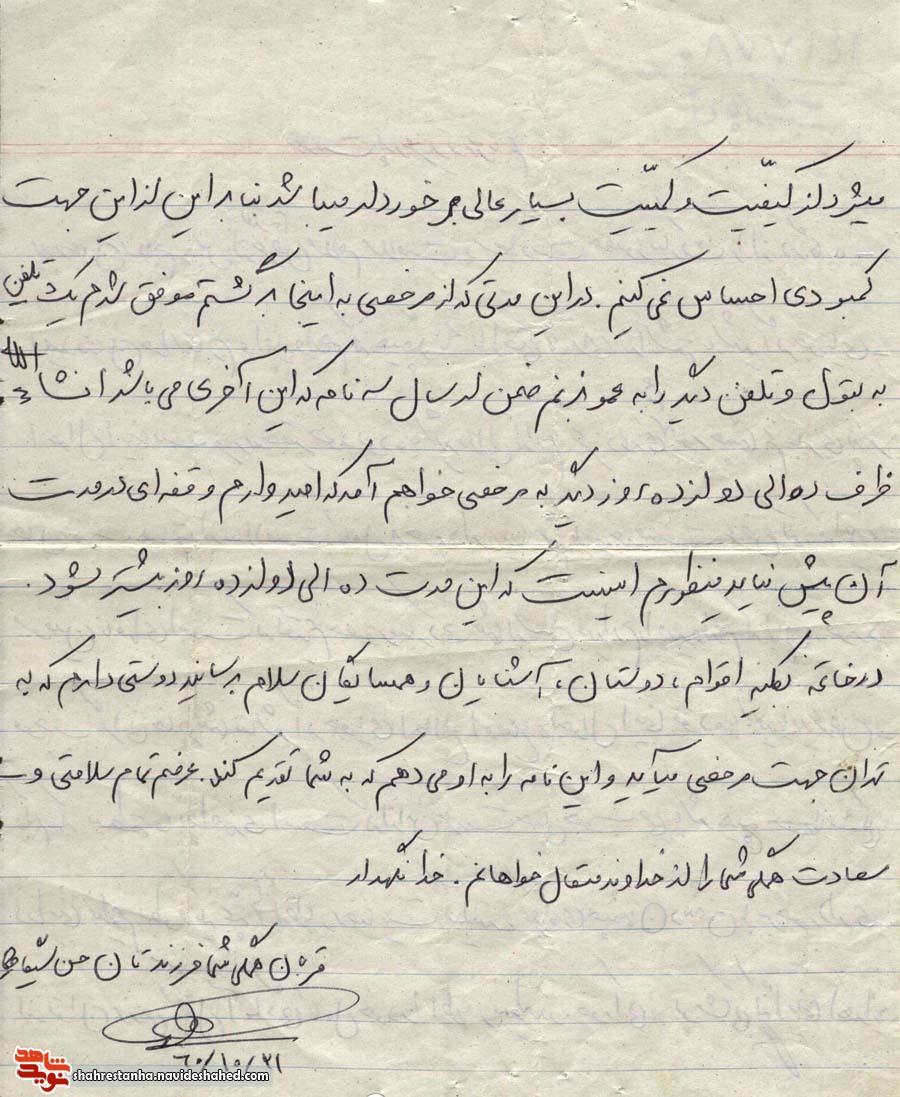 میشود از کیفیّت و کمیّت بسیار عالی برخوردار میباشد بنابراین از این جهت
کمبودی احساس نمی کنیم. در این مدتی که از مرخصی به اینجا برگشتم موفق شدم یک تلفن
به بتول و تلفن دیگر را به عمو بزنم ضمن ارسال سه نامه که این آخری می باشد انشاءالله
ظرف ده الی دوازده روز دیگر به مرخصی خواهم آمد که امیدوارم وقفه ای در مدت
آن پیش نیاید منظورم اینست که این مدت ده الی دوازده روز بیشتر نشود.
در خاتمه بکلیه اقوام، دوستان، آشنایان و همسایگان سلام برسانید دوستی دارم که به
تهران جهت مرخصی میآید و این نامه را به او می دهم که به شما تقدیم کند. عرضم تمام سلامتی و
سعادت همگی شما را از خداوند متعال خواهانم. خدا نگهدار
قربان همگی شما فرزندتان حسن
۶۰/۱۰/۲۱
نوید شاهد
shahrestanha.navideshahed.com